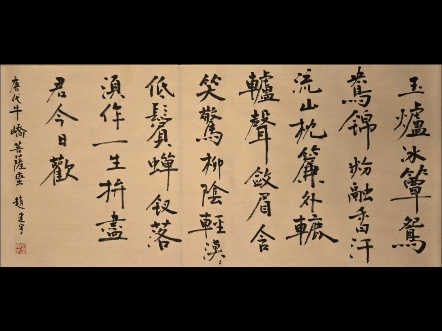 玉爐冰簟鴛
鴦錦粉融香汗
流山枕簾外轆
轤聲斂眉含
笑驚柳陰輕漠〻
低鬢蟬釵落
須作一生拚盡
君今日歡
唐代牛嶠菩薩蛮 趙建